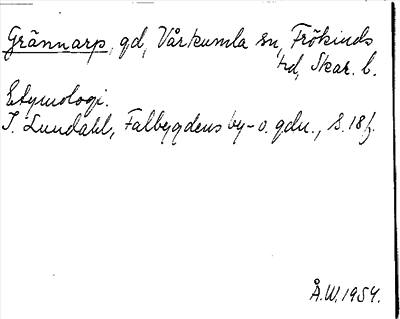 Grännarp, gd, Vårkumla sn, Frökinds
hd, Skar. l.
Etymologi.
I. Lundahl, Falbygdens by- o. gdn., s. 18 f.
Å.W. 1954.